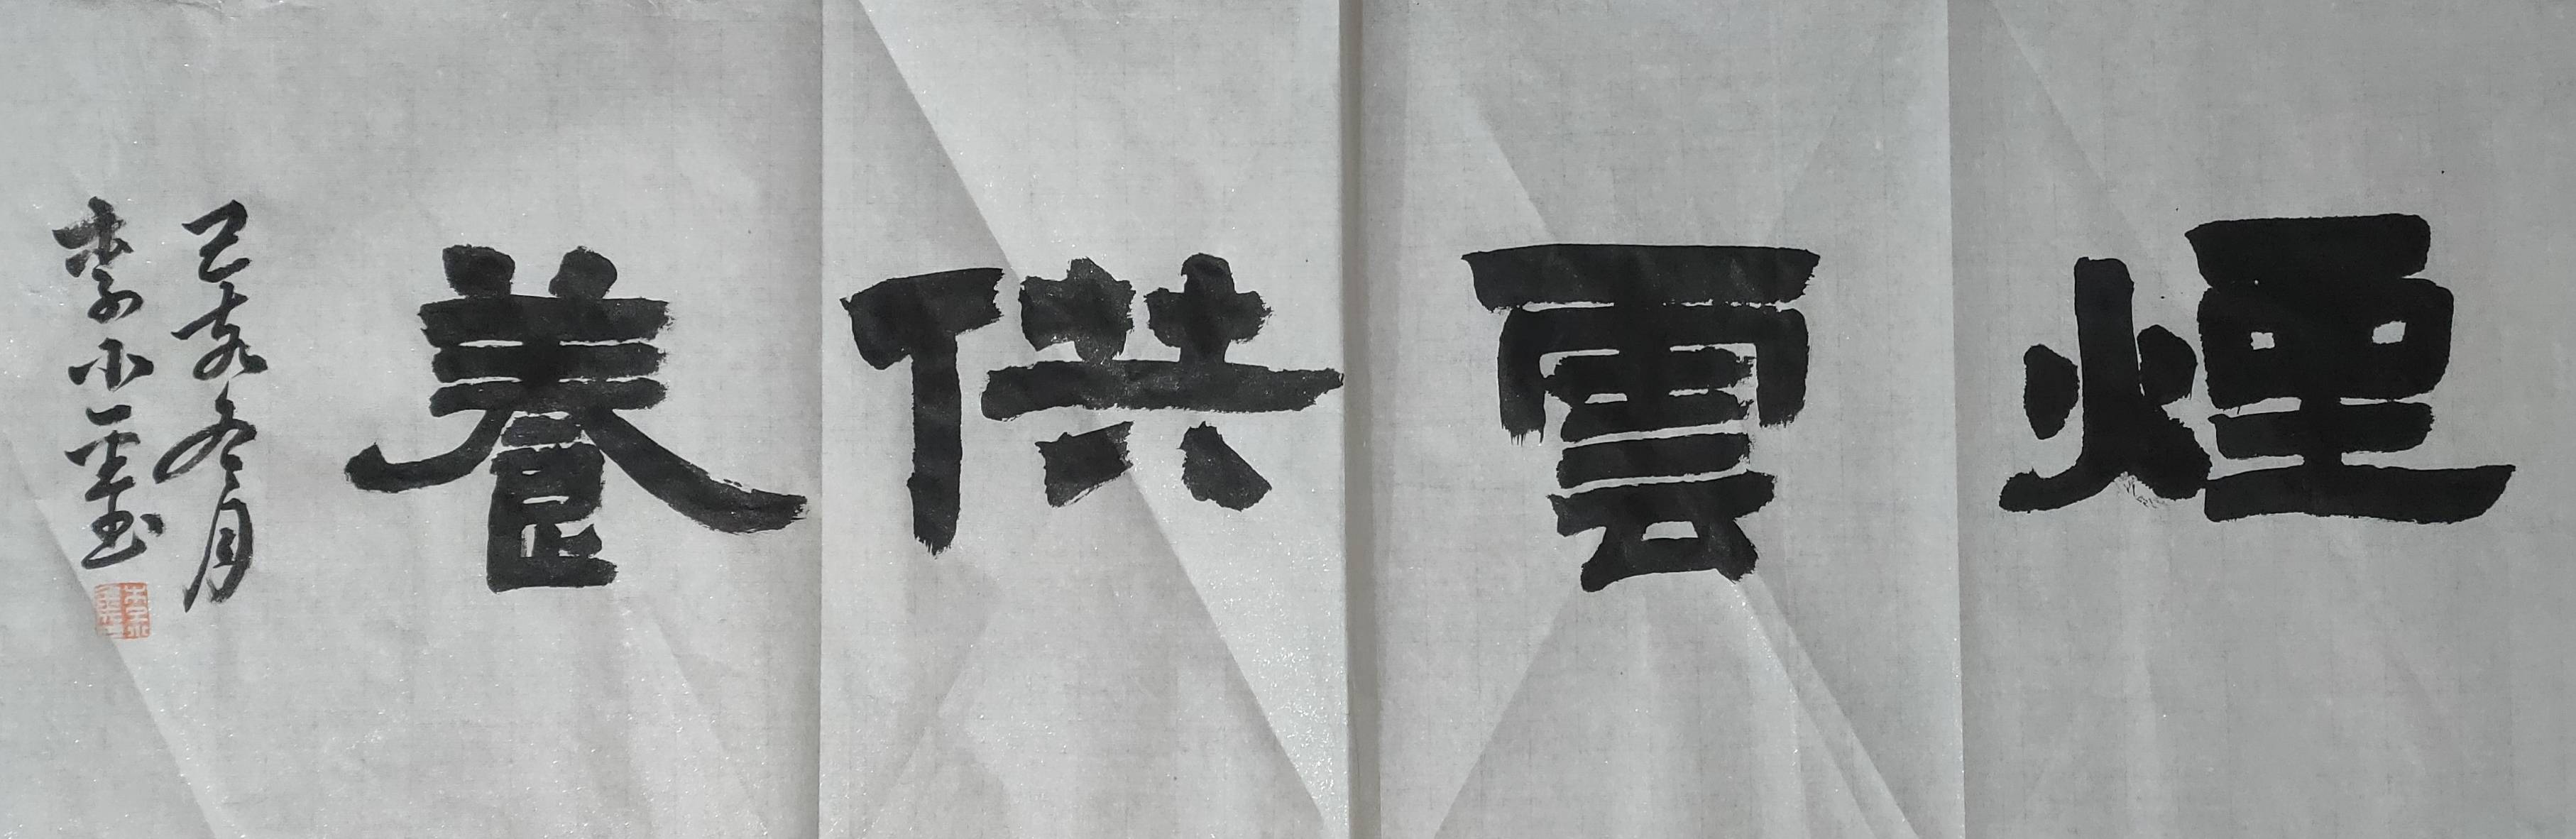 煙雲供養
己亥冬月
李小平書